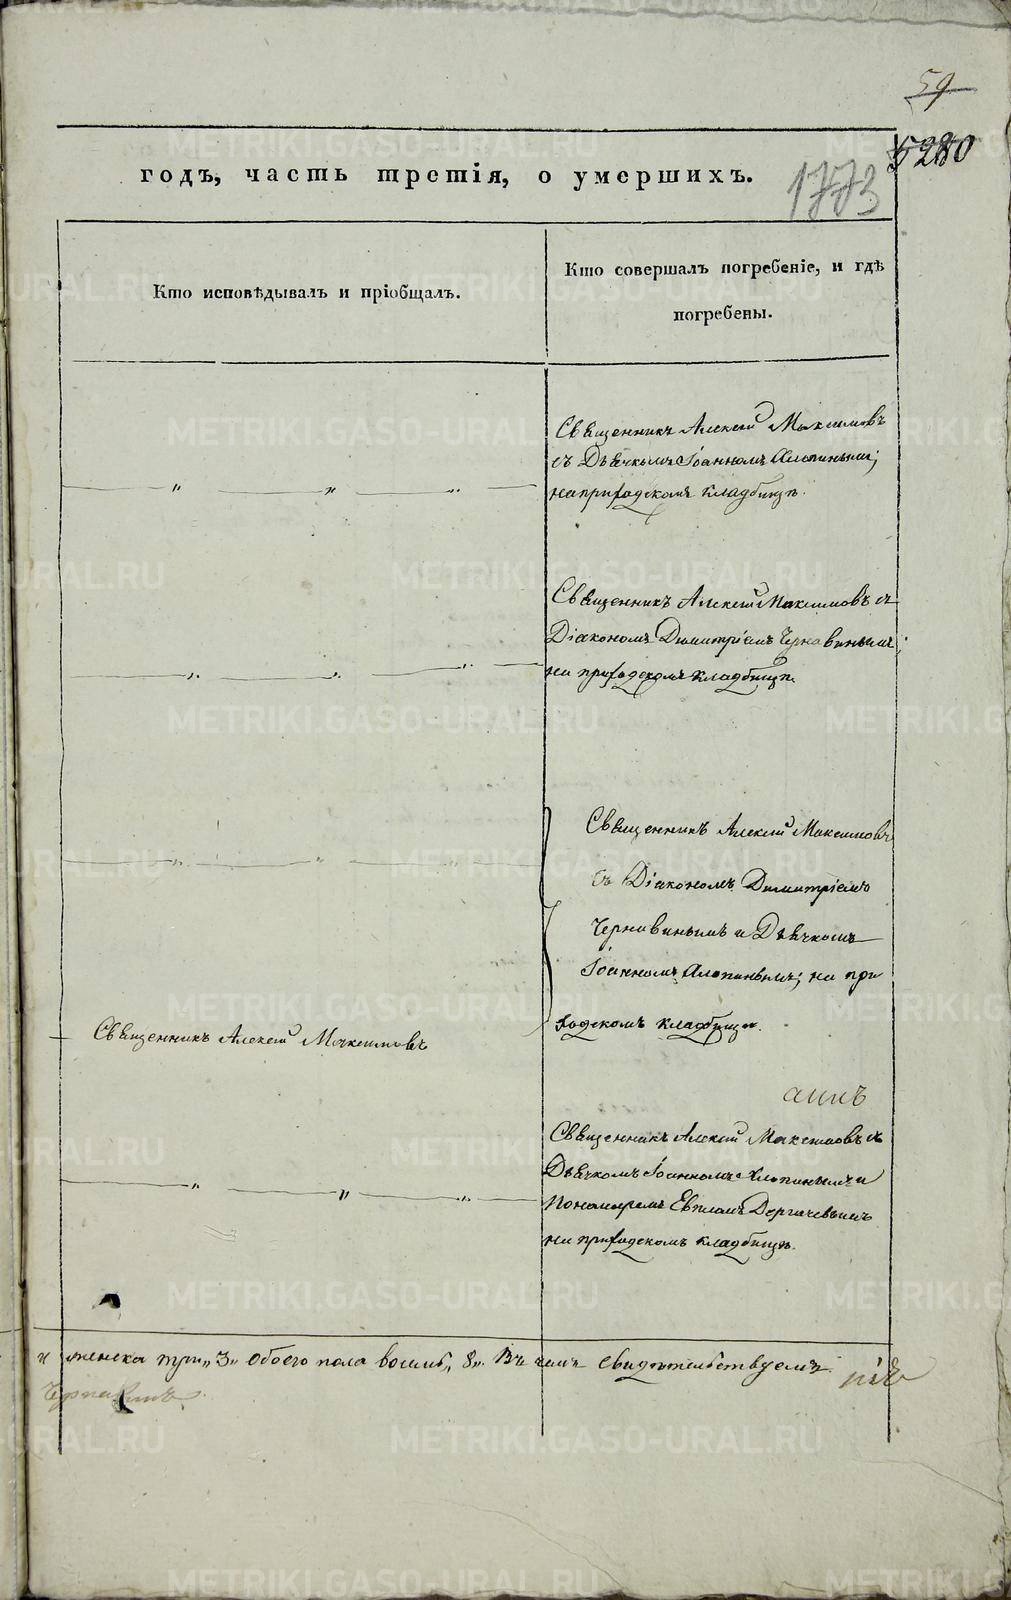 59
280
годъ, часть третія, о умершихъ.
1773
Кто исповѣдывалъ и пріобщалъ.
Кто совершалъ погребеніе, и гдѣ
погребены.
Священникъ Алексій Максимовъ
съ Дьячкомъ Іоанномъ Хлопинымъ;
на приходскомъ кладбищѣ.
Священникъ Алексій Максимовъ съ
Діакономъ Димитріемъ Чернавинымъ;
на приходскомъ кладбищѣ.
Священникъ Алексій Максимовъ
съ Діакономъ Димитріемъ
Чернавинымъ и Дьячкомъ
Іоанномъ Хлопинымъ; на при
ходскомъ кладбищѣ.
Священникъ Алексій Максимовъ
Священникъ Алексій Максимовъ съ
Дьячкомъ Іоанномъ Хлопинымъ и
Пономаремъ Евплomъ Дергачевымъ
на приходскомъ кладбищѣ.
и женска три „3„ обоего пола восемь „8„. Въ чемъ свидѣтельствуемъ
METRIKI.GASO-URAL.RU